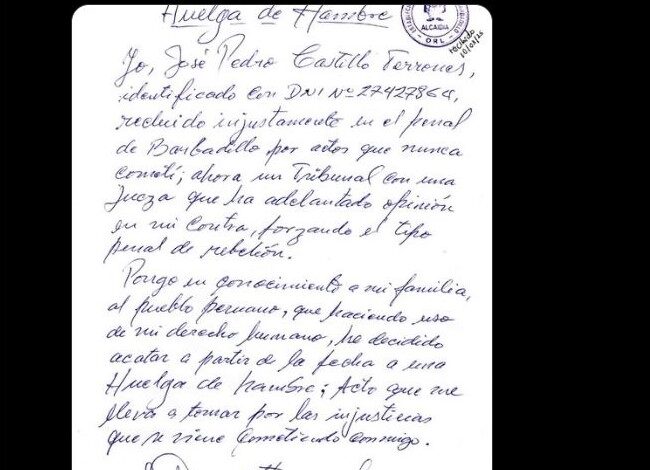 Huelga de Hambre
ALCAIDIA
ORL
Recibido
10/03/25
Yo, José Pedro Castillo Terrones,
identificado con DNI Nº 27427864,
recluido injustamente en el penal
de Barbadillo por actos que nunca
cometí; ahora un Tribunal con una
Jueza que ha adelantado opinión
en mi contra, forzando el tipo
penal de rebelión.
Pongo en conocimiento a mi familia,
al pueblo peruano, que haciendo uso
de mi derecho humano, he decidido
acatar a partir de la fecha a una
Huelga de hambre; Acto que me
lleva a tomar por las injusticias
que se viene cometiendo conmigo.